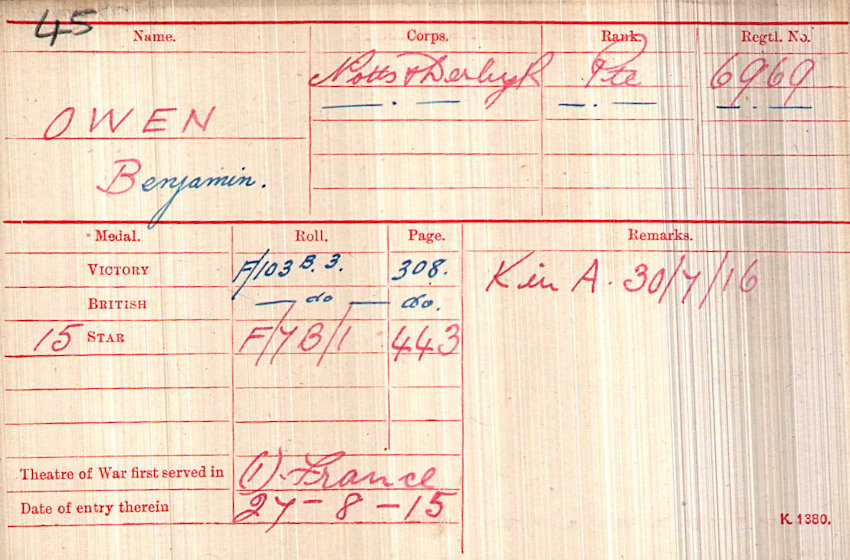 45
Name. Corps. Rank. Regtl. No.
Notts & Derby R Pte 6969
OWEN
Benjamin.
Medal. Roll. Page. Remarks.
VICTORY F/103 B. 3. 308. K in A. 30/7/16
BRITISH — do — do.
15 STAR F/7B/1 443
Theatre of War first served in (1). France
Date of entry therein 27-8-15
K. 1380.